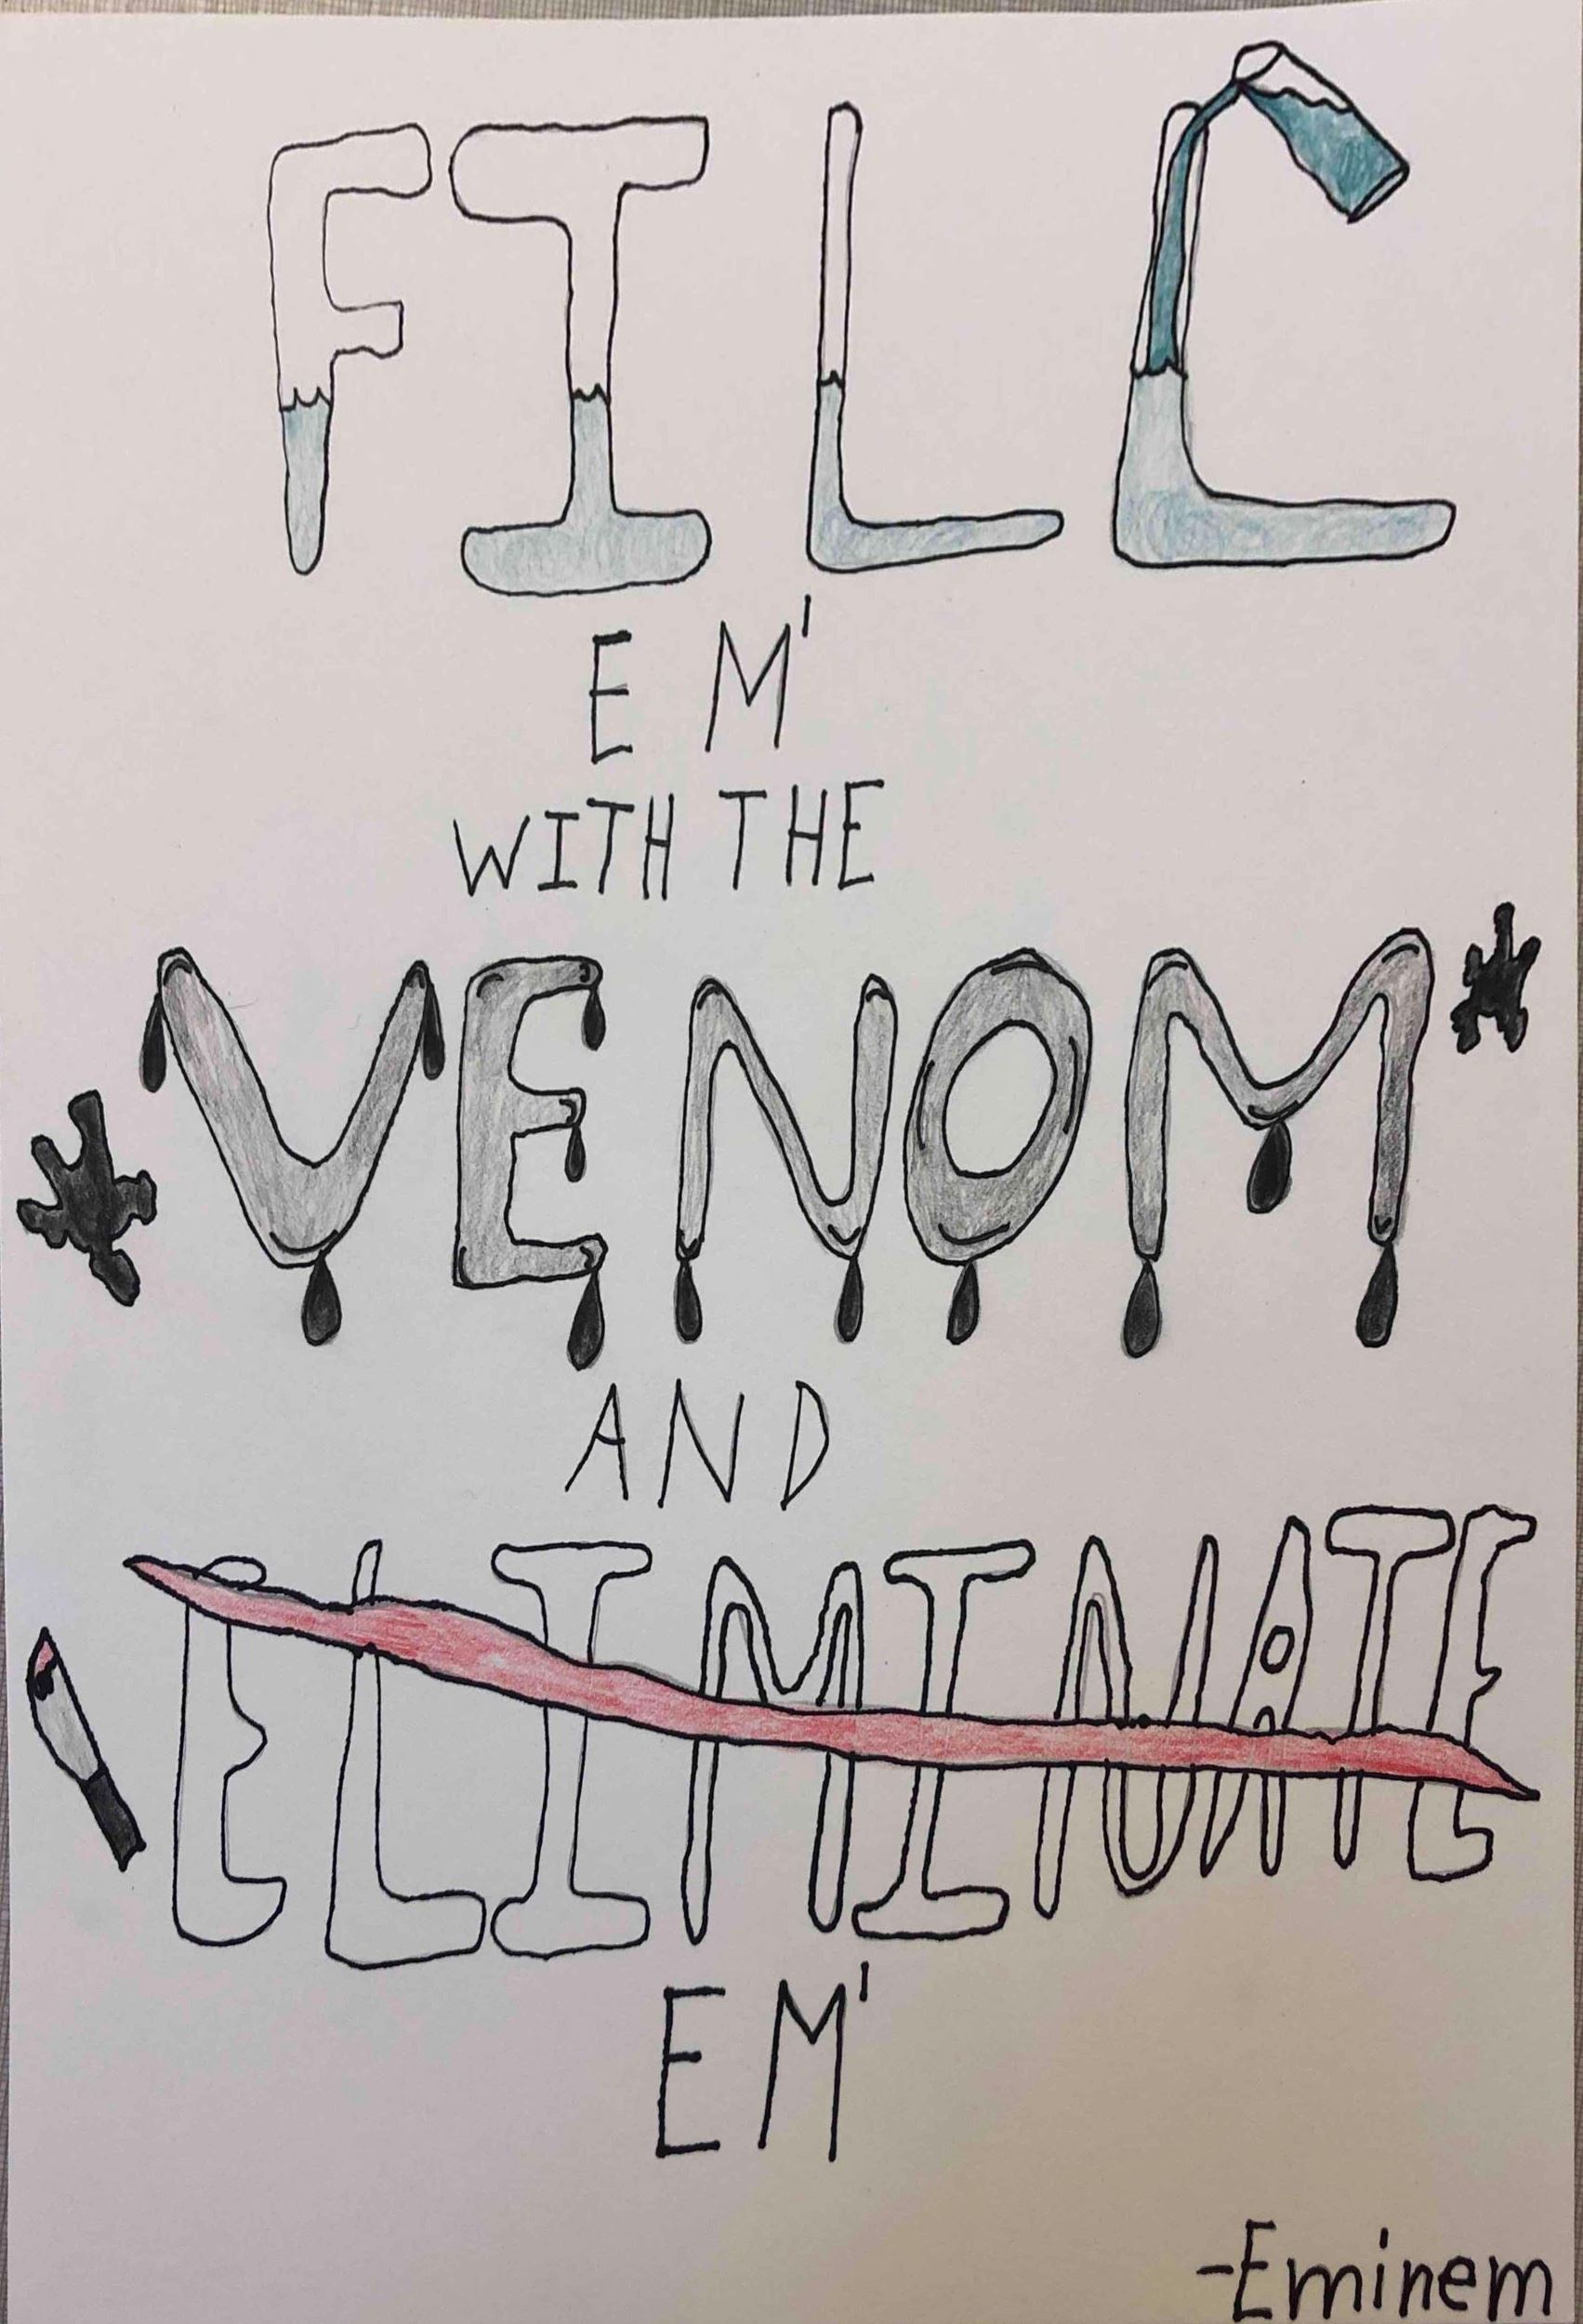 FILL
EM'
WITH THE
VENOM
AND
ELIMINATE
EM'
-Eminem